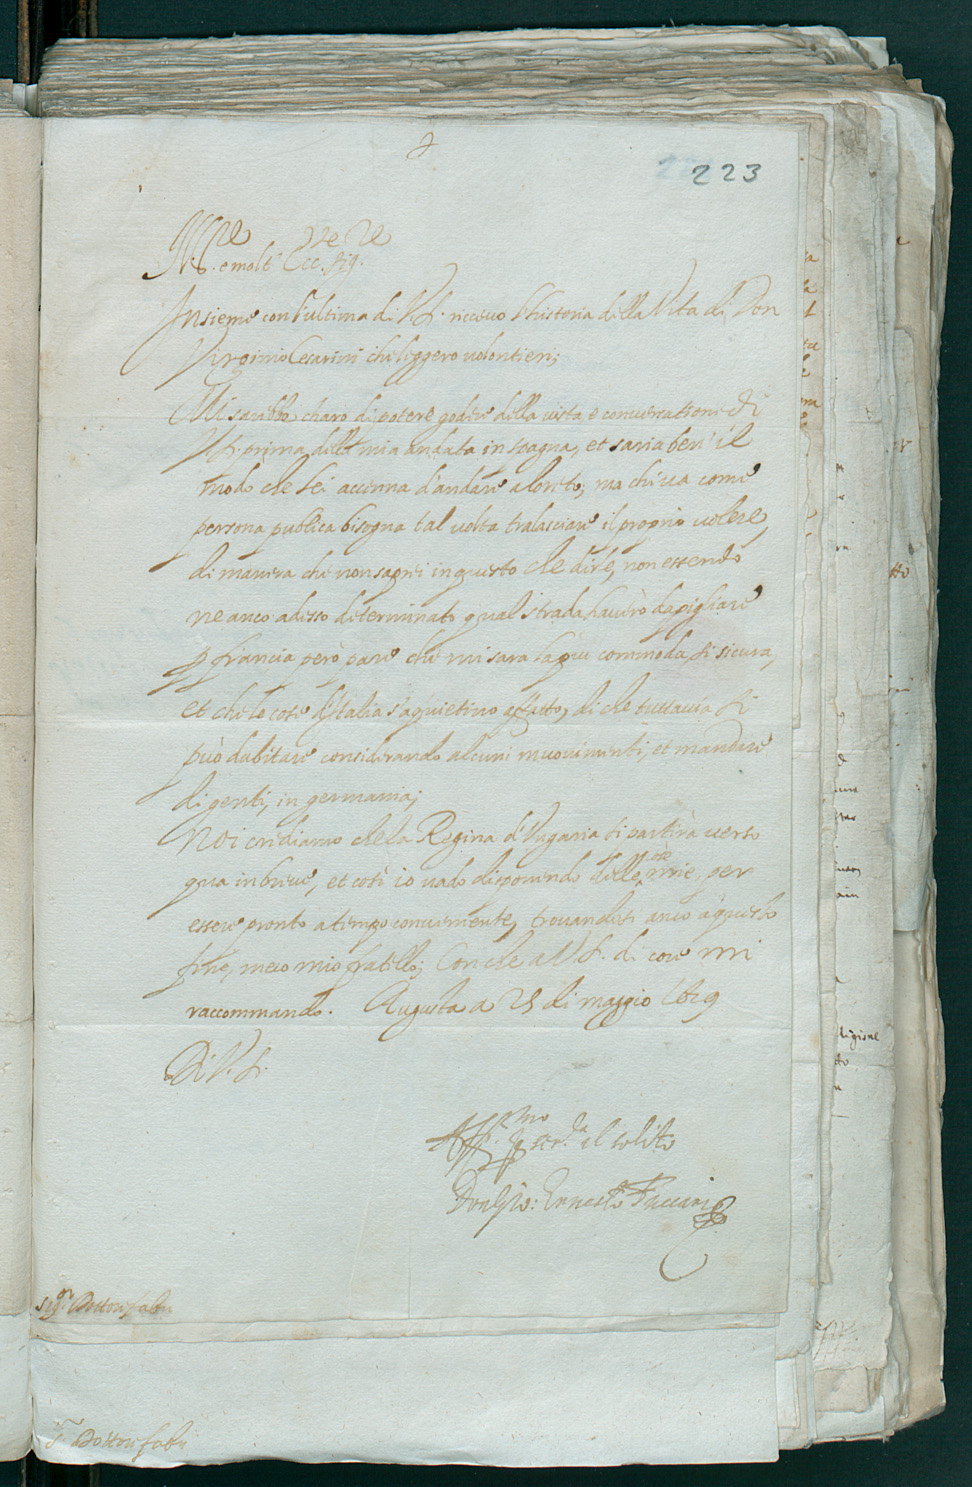 223
Ill.re e molt' Ecc.te Sig.re
Insieme con l'ultima di V.S. ricevo l'historia della Vita di Don
Virginio Cesarini che leggero volontieri;
Mi sarebbe charo di potere godere della vista e conversatione di
V.S. prima della mia andata in Spagna, et saria ben' il
modo che Lei accenna d'andare a loreto; ma chi va come
persona publica bisogna tal volta tralasciare il proprio volere,
di manera che non saprei in questo che dire, non essendo
ne anco adesso determinato qual strada haverò da pigliare
p francia però pare che mi sara la piu commoda, si sicura,
et che le cose d'Italia s'aquietino affatto, di che tuttavia si
può dubitare considerando alcuni muovimenti, et mandare
di genti, in germania;
Noi crediamo che la Regina d'Ungaria si partirà verso
qua in breve, et così io vado disponendo delle cose mie, per
essere pronto a tempo conveniente, trovandosi anco a questo
fine, meco mio fratello; Con che a V.S. di core mi
raccommando. Augusta a 25 di maggio 1629
Di V.S.
Aff.mo p ser.la il solito
Don Gio: Ernesto Fuccari
Sig.or Dottor fabri
S.r Dottor fabri